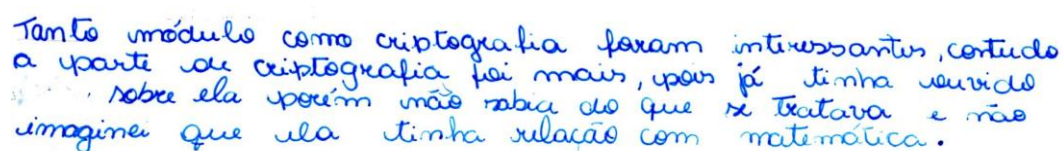 Tanto módulo como criptografia foram interessantes, contudo
a parte de criptografia foi mais, pois já tinha ouvido
sobre ela porém não sabia do que se tratava e não
imaginei que ela tinha relação com matemática.